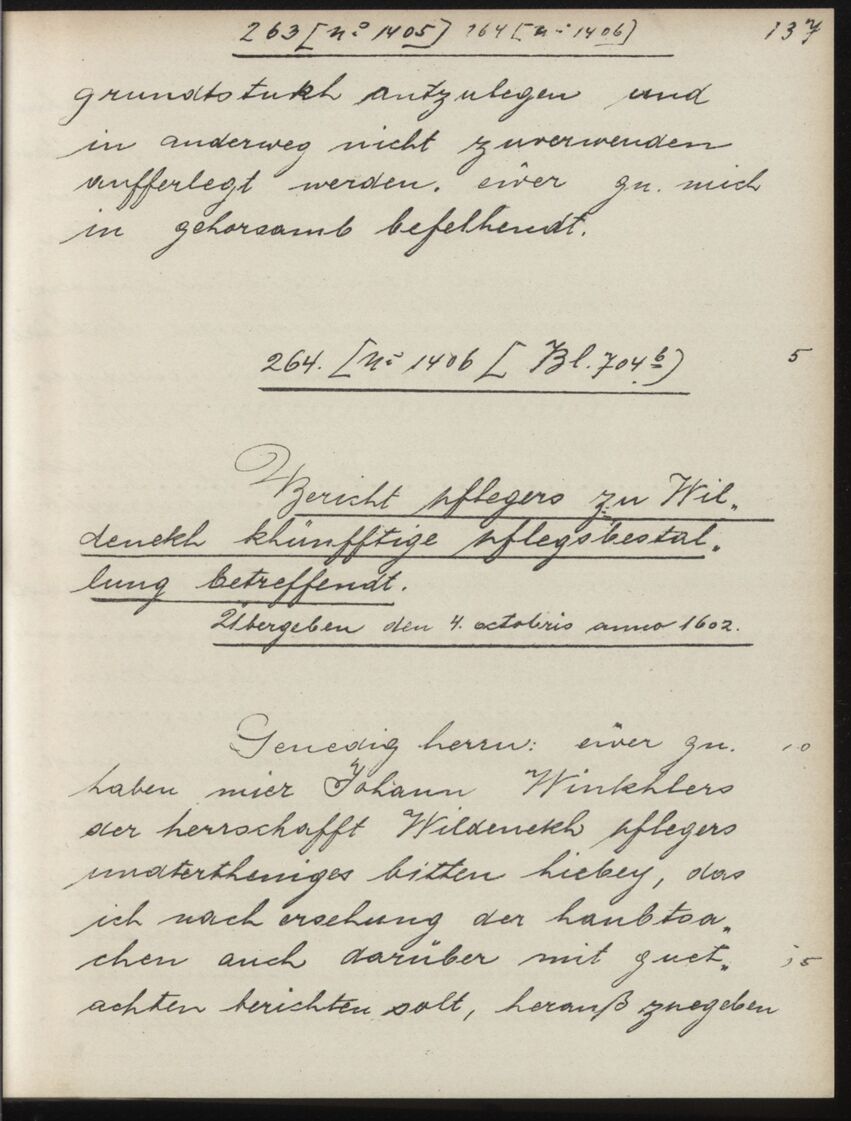 263 [nº 1405] 264 [nº 1406] 137
grundtstukh antzulegen und
in anderweg nicht zuverwenden
aufferlegt werden. eiver gn. mich
in gehorsamb befelhendt.
264. [Nº 1406 [Bl. 704b] 5
Bericht pflegers zu Wil„
denekh khünfftige pflegsbestal„
lung betreffendt.
Übergeben den 4. octobris anno 1602.
Genedig herrn: eiver gn. 10
haben mier Johann Winkhlers
der herrschafft Wildenekh pflegers
undtertheniges bitten hiebey, das
ich nach ersehung der haubtsa„
chen auch darüber mit guet„ 15
achten berichten solt, herauß zuegeben